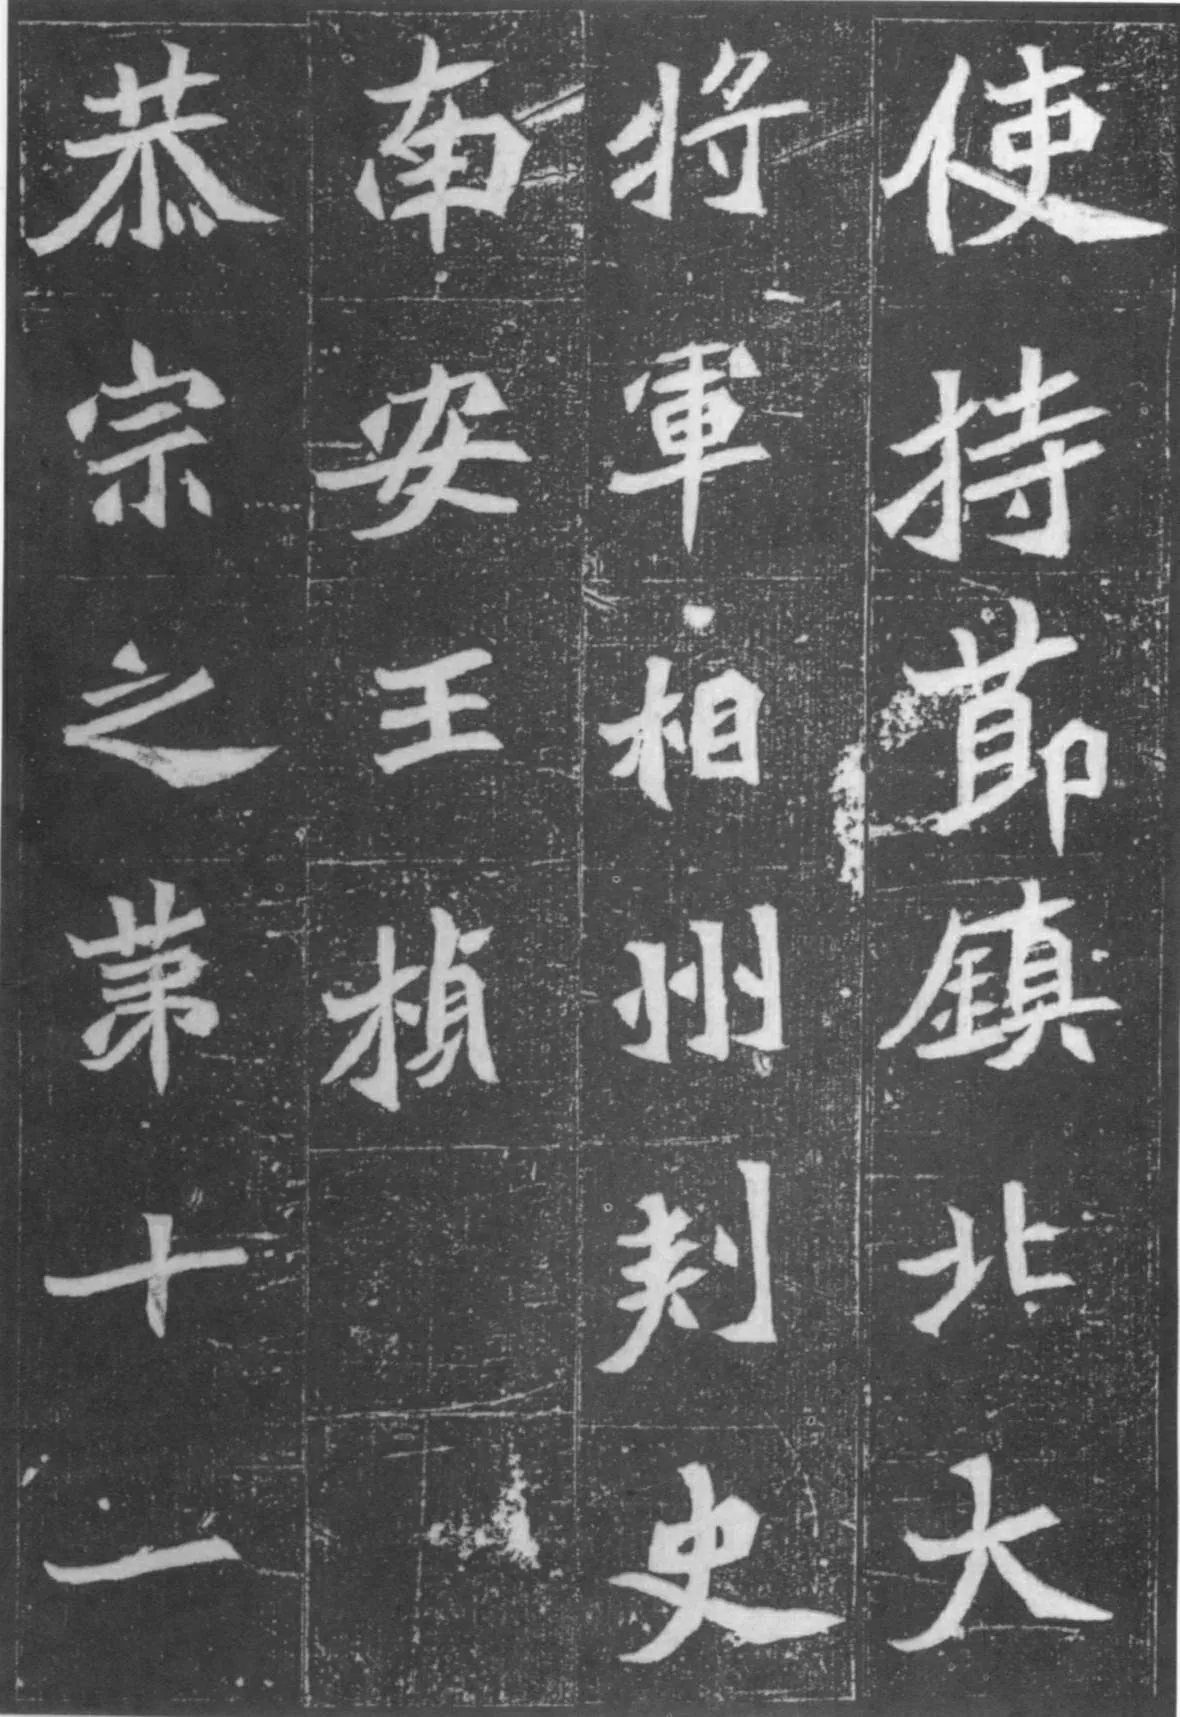 使持節鎮北大
将軍相州刾史
南安王楨
恭宗之苐十一